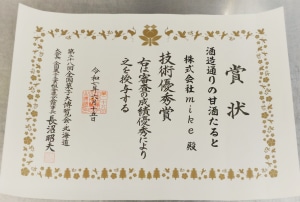 賞状
酒造通りの甘酒たると
株式会社mike殿
技術優秀賞
右は審査の成績優秀により
之を授与する
令和七年六月十五日
第二十八回全国菓子大博覧会・北海道
長沼昭夫